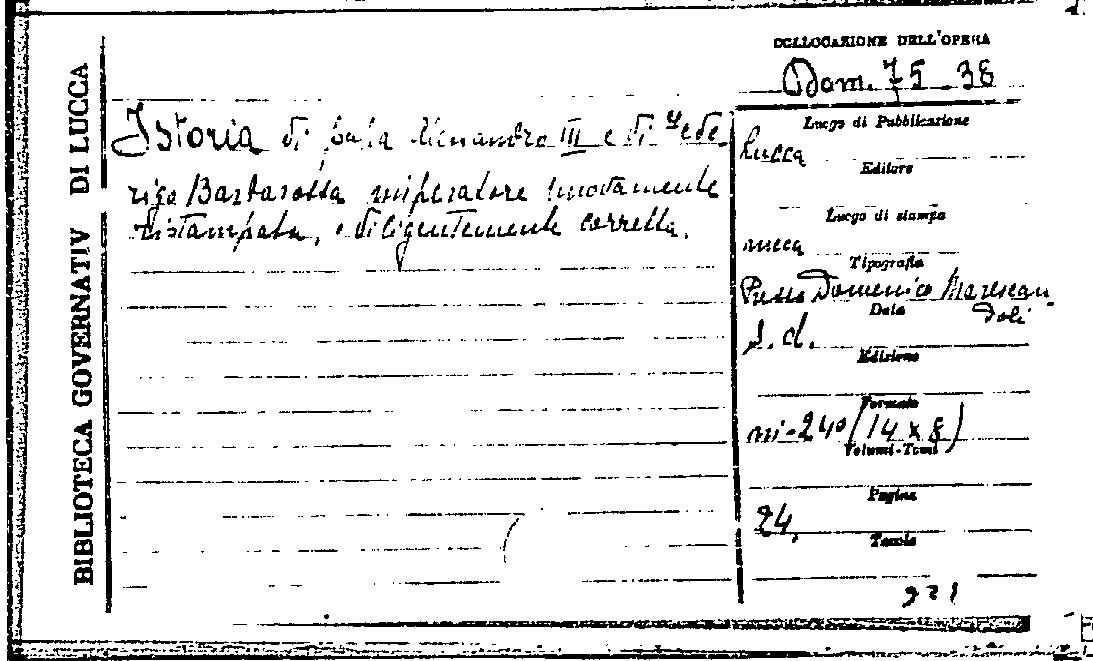 BIBLIOTECA GOVERNATIV DI LUCCA
COLLOCAZIONE DELL'OPERA
Dom. 75 38
Istoria di papa Alessandro III e di Fede
rigo Barbarossa imperatore nuovamente
ristampata, e diligentemente corretta.
Luogo di Pubblicazione
Lucca
Editore
Luogo di stampa
Lucca
Tipografia
Presso Domenico Marescan
doli
Data
s. d.
Edizione
Formato
in-24° (14 x 8)
Volumi-Tomi
Pagine
24.
Tavole